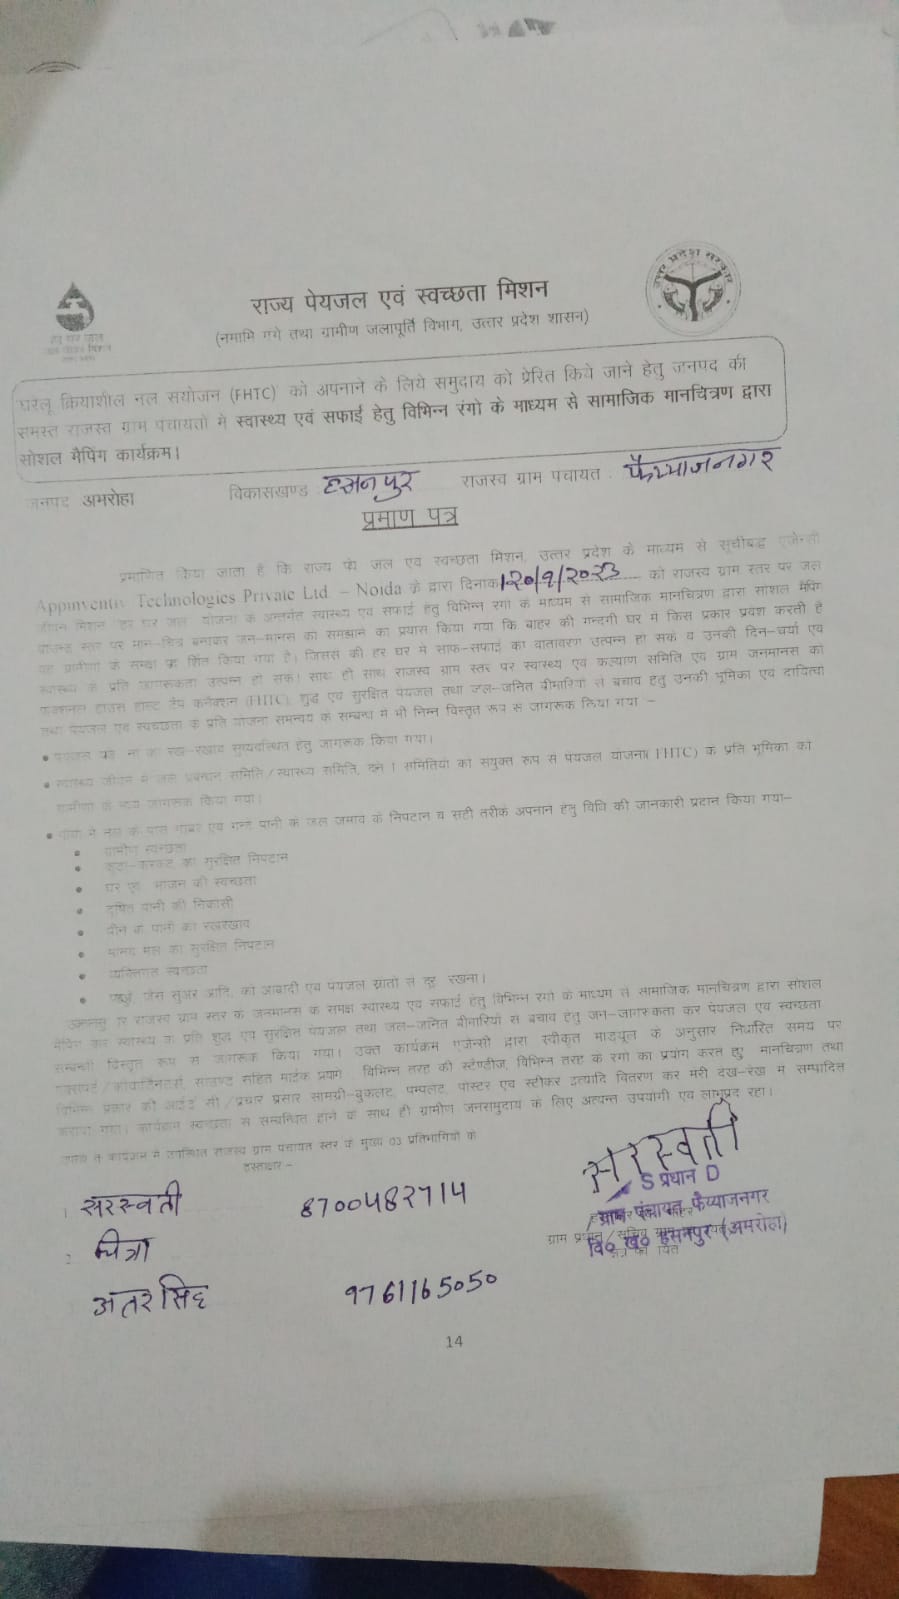 उत्तर प्रदेश सरकार
राज्य पेयजल एवं स्वच्छता मिशन
(नमामि गंगे तथा ग्रामीण जलापूर्ति विभाग, उत्तर प्रदेश शासन)
हर घर जल
जल जीवन मिशन
घरेलू क्रियाशील नल सयोजन (FHTC) को अपनाने के लिये समुदाय को प्रेरित किये जाने हेतु जनपद की
समस्त राजस्त ग्राम पंचायतो मे स्वास्थ्य एवं सफाई हेतु विभिन्न रंगो के माध्यम से सामाजिक मानचित्रण द्वारा
सोशल मैपिंग कार्यक्रम।
जनपद अमरोहा विकासखण्ड हसनपुर राजस्व ग्राम पंचायत फैय्याजनगर
प्रमाण पत्र
प्रमाणित किया जाता है कि राज्य पेय जल एवं स्वच्छता मिशन, उत्तर प्रदेश के माध्यम से सूचीबद्ध एजेन्सी
Appinventiv Technologies Private Ltd. – Noida के द्वारा दिनांक 20/9/2023 को राजस्व ग्राम स्तर पर जल
जीवन मिशन हर घर जल योजना के अन्तर्गत स्वास्थ्य एवं सफाई हेतु विभिन्न रंगो के माध्यम से सामाजिक मानचित्रण द्वारा सोशल मैपिंग
स्तर पर मान-चित्र बनाकर जन-मानस को समझाने का प्रयास किया गया कि बाहर की गन्दगी घर में किस प्रकार प्रवेश करती है
यह ग्रामीणों के समक्ष किया गया है। जिससे की हर घर मे साफ-सफाई का वातावरण उत्पन्न हो सके व उनकी दिन-चर्या एवं
स्वास्थ्य के प्रति जागरूकता उत्पन्न हो सके। साथ ही साथ राजस्व ग्राम स्तर पर स्वास्थ्य एवं कल्याण समिति एवं ग्राम जनमानस को
फंक्शनल हाउस होल्ड टेप कनैक्शन (FHTC), शुद्ध एवं सुरक्षित पेयजल तथा जल-जनित बीमारियों से बचाव हेतु उनकी भूमिका एवं दायित्वों
तथा पेयजल एवं स्वच्छता के प्रति योजना समन्वय के सम्बन्ध में भी निम्न विस्तृत रूप से जागरूक किया गया –
• पेयजल रख-रखाव सुव्यवस्थित हेतु जागरूक किया गया।
• समिति/स्वास्थ्य समिति, समितियों को संयुक्त रूप से पेयजल योजना (FHTC) के प्रति भूमिका को
ग्रामीणों के मध्य जागरूक किया गया।
• नल के पास गोबर एवं गन्दे पानी के जल जमाव के निपटान व सही तरीके अपनाने हेतु विधि की जानकारी प्रदान किया गया–
• ग्रामीण स्वच्छता
• कूडा-करकट का सुरक्षित निपटान
• घर एवं भोजन की स्वच्छता
• दूषित पानी की निकासी
• पीने के पानी का रखरखाव
• मानव मल का सुरक्षित निपटान
• व्यक्तिगत स्वच्छता
• पशुओं, जैसे सुअर आदि, को आबादी एवं पेयजल स्रोतों से दूर रखना।
राजस्व ग्राम स्तर के जनमानस के समक्ष स्वास्थ्य एवं सफाई हेतु विभिन्न रंगो के माध्यम से सामाजिक मानचित्रण द्वारा सोशल
मैपिंग कर स्वास्थ्य के प्रति शुद्ध एवं सुरक्षित पेयजल तथा जल-जनित बीमारियों से बचाव हेतु जन-जागरूकता कर पेयजल एवं स्वच्छता
सम्बन्धी विस्तृत रूप से जागरूक किया गया। उक्त कार्यक्रम एजेन्सी द्वारा स्वीकृत माड्यूल के अनुसार निर्धारित समय पर
सहित माईक प्रयोग, विभिन्न तरह की स्टेण्डीज, विभिन्न तरह के रंगो का प्रयोग करते हुए मानचित्रण तथा
विभिन्न प्रकार की आई0 सी0/प्रचार प्रसार सामग्री-बुकलेट, पम्पलेट, पोस्टर एवं स्टीकर इत्यादि वितरण कर मेरी देख-रेख मे सम्पादित
कराया गया। कार्यक्रम स्वच्छता से सम्बन्धित होने के साथ ही ग्रामीण जनसमुदाय के लिए अत्यन्त उपयोगी एवं लाभप्रद रहा।
कार्यक्रम मे उपस्थित राजस्व ग्राम पंचायत स्तर के मुख्य 03 प्रतिभागियों के
हस्ताक्षर –
सरस्वती
1 सरस्वती 8700482714
S प्रधान D
ग्राम पंचायत फैय्याजनगर
ग्राम प्रधान/सचिव
वि० ख० हसनपुर (अमरोहा)
2 चित्रा
अंतर सिंह 9761165050
14